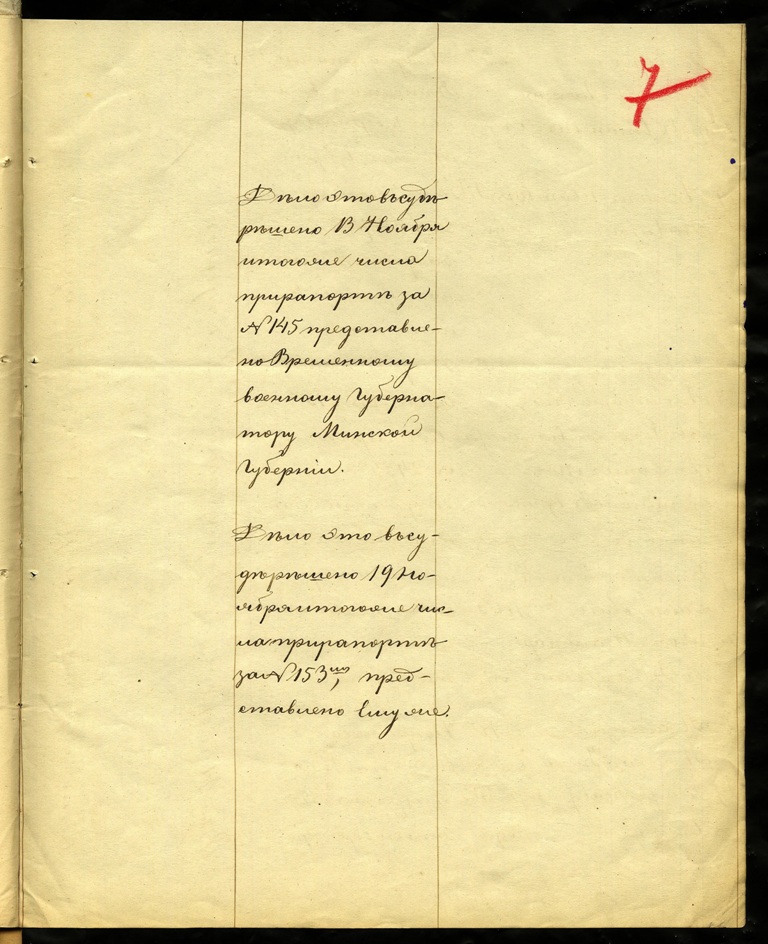 7
Дѣло это въ судѣ
рѣшено 13 Ноября
и того же числа
при рапортѣ за
№ 145 представле-
но Временному
военному Губерна-
тору Минской
Губерніи.
Дѣло это въ су-
дѣ рѣшено 19 Но-
ября и того же чис-
ла при рапортѣ
за № 153мъ, пред-
ставлено Ему же.